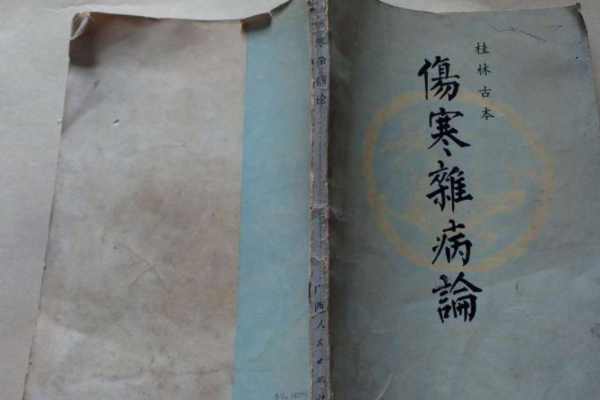 桂林古本
傷寒雜病論
寒杂病论
广西人民出版社